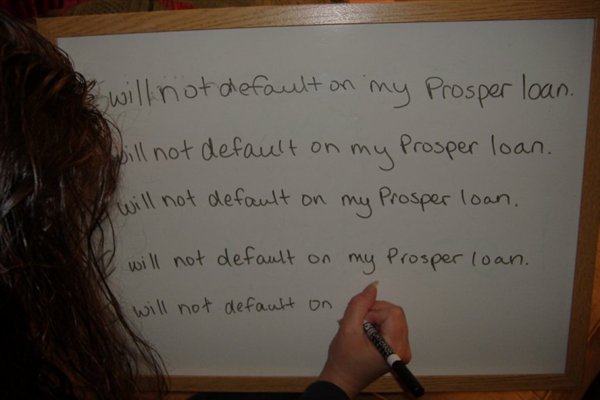 will not default on my Prosper loan.
will not default on my Prosper loan.
will not default on my Prosper loan.
will not default on my Prosper loan.
will not default on